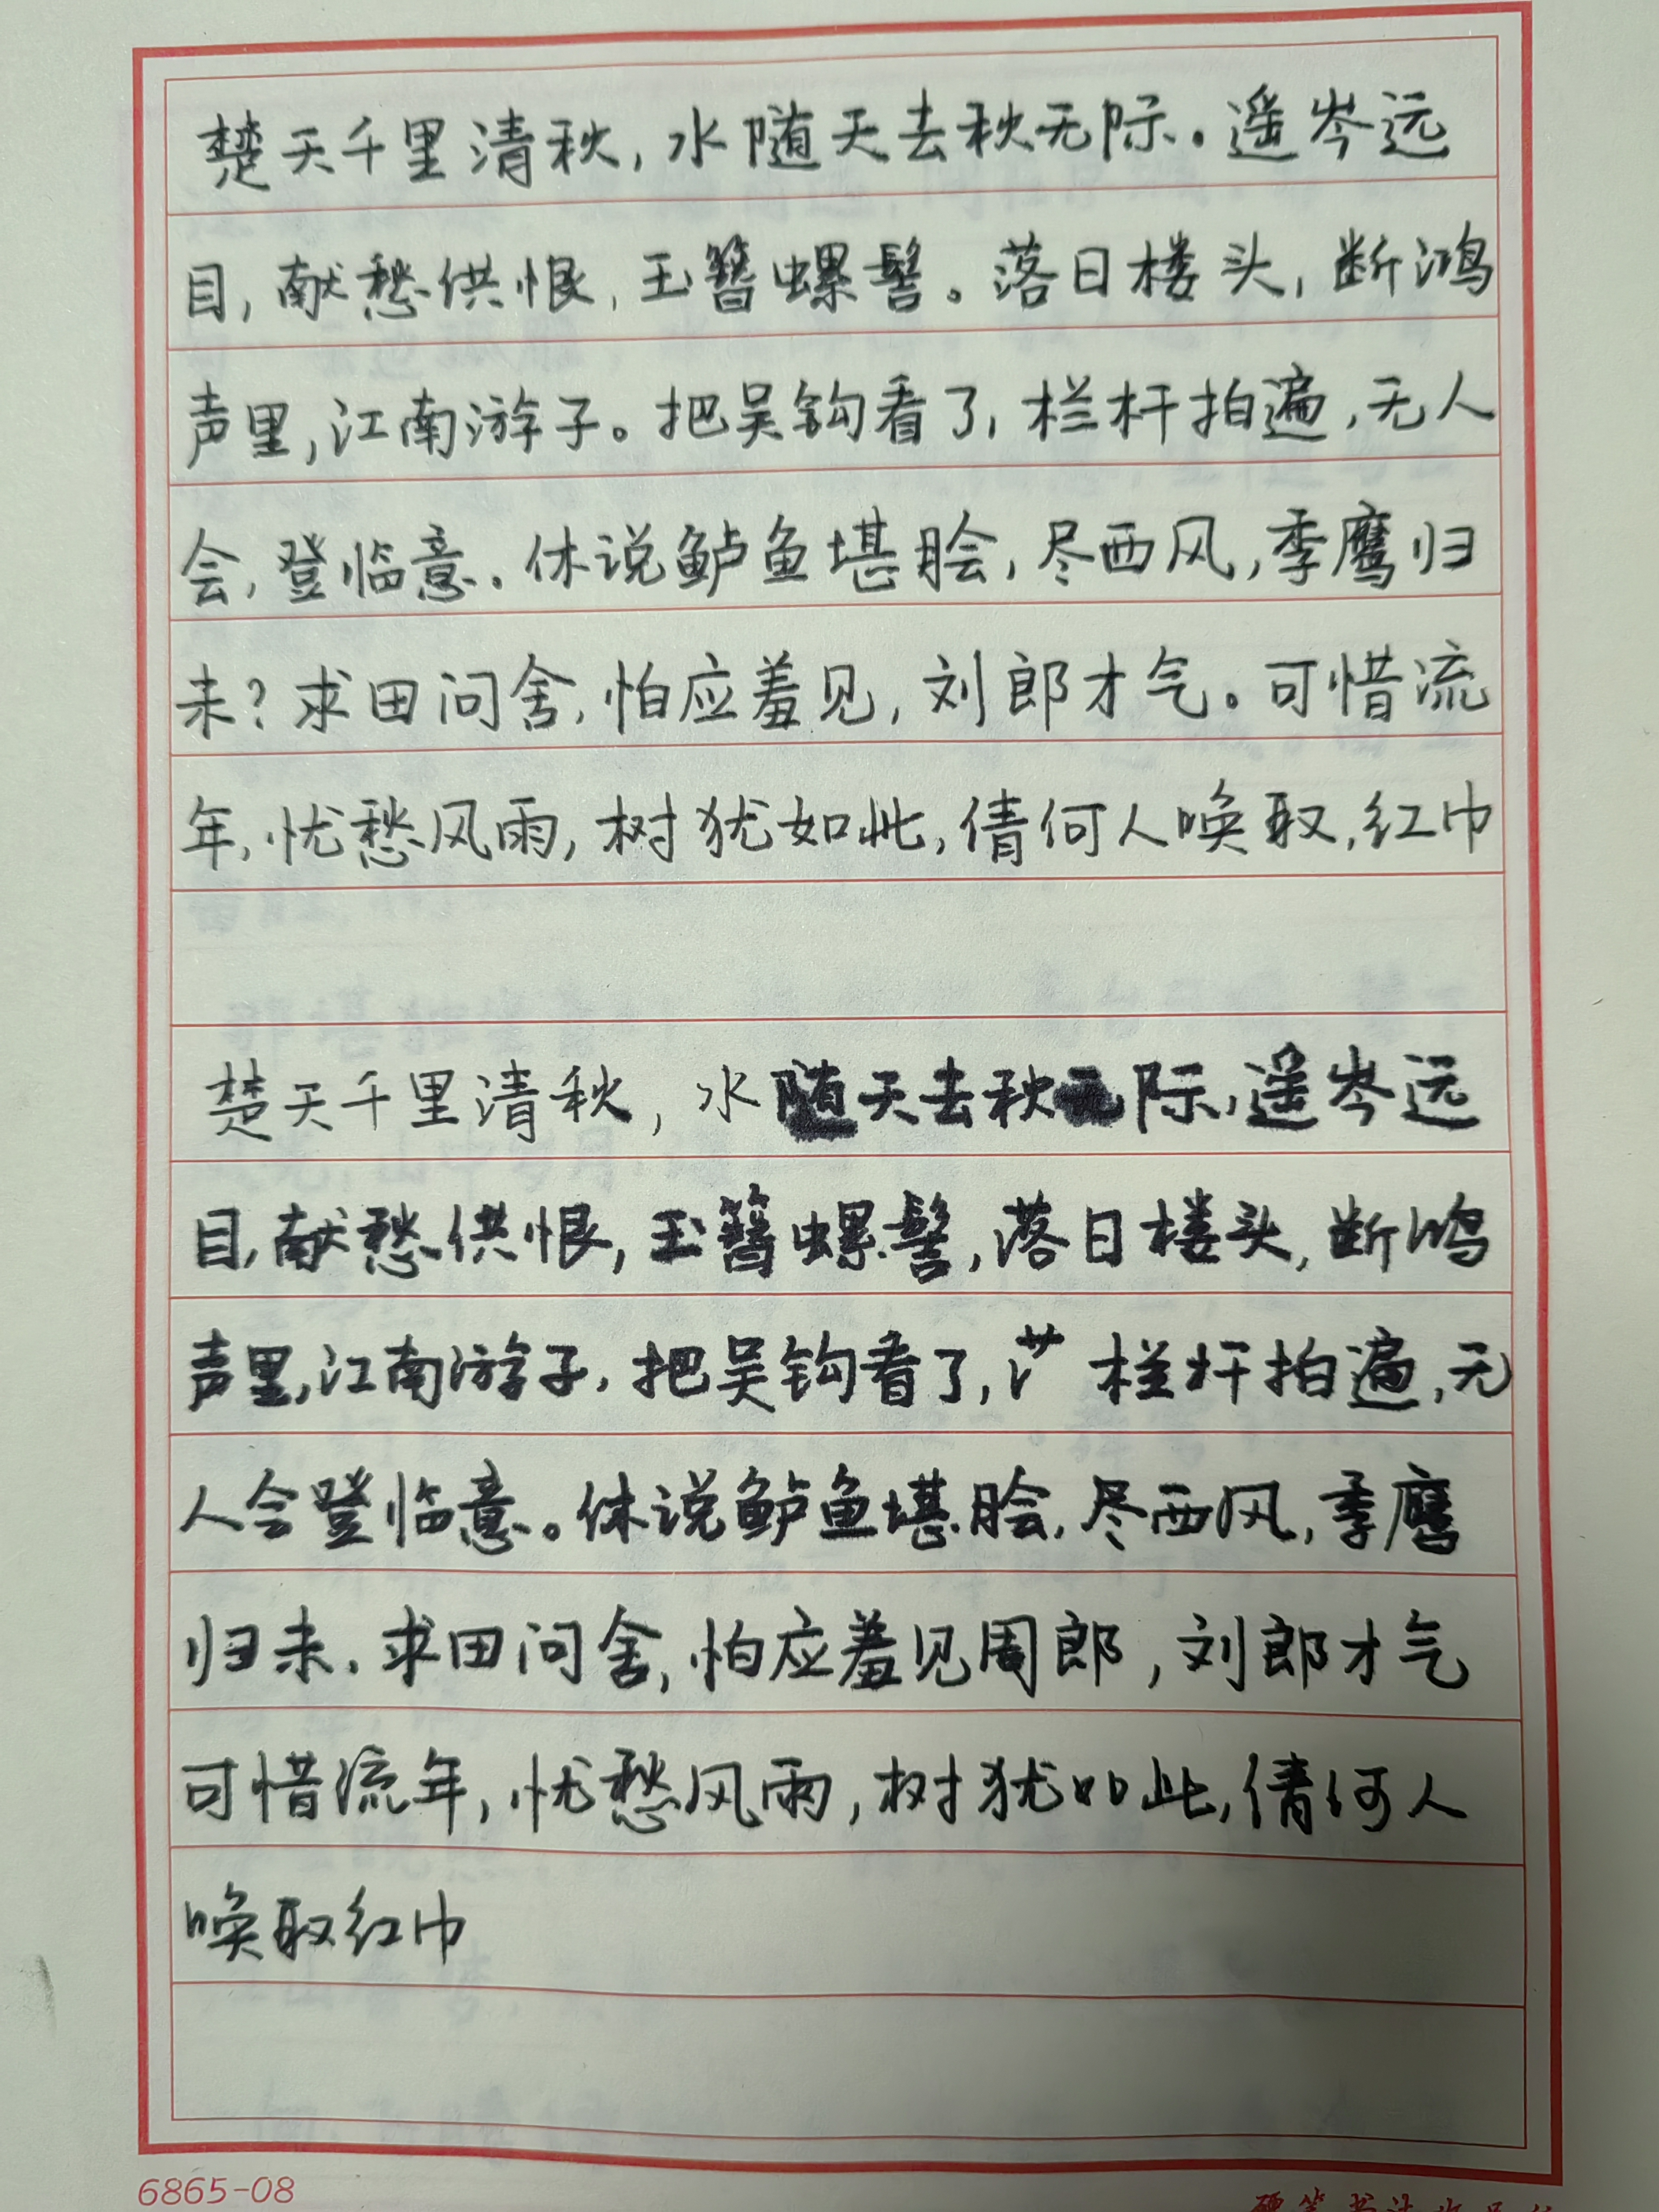 楚天千里清秋，水随天去秋无际。遥岑远
目，献愁供恨，玉簪螺髻。落日楼头，断鸿
声里，江南游子。把吴钩看了，栏杆拍遍，无人
会，登临意。休说鲈鱼堪脍，尽西风，季鹰归
未？求田问舍，怕应羞见，刘郎才气。可惜流
年，忧愁风雨，树犹如此，倩何人唤取，红巾
楚天千里清秋，水随天去秋无际，遥岑远
目，献愁供恨，玉簪螺髻，落日楼头，断鸿
声里，江南游子，把吴钩看了，栏杆拍遍，无
人会登临意。休说鲈鱼堪脍，尽西风，季鹰
归未，求田问舍，怕应羞见周郎，刘郎才气
可惜流年，忧愁风雨，树犹如此，倩何人
唤取红巾
6865-08